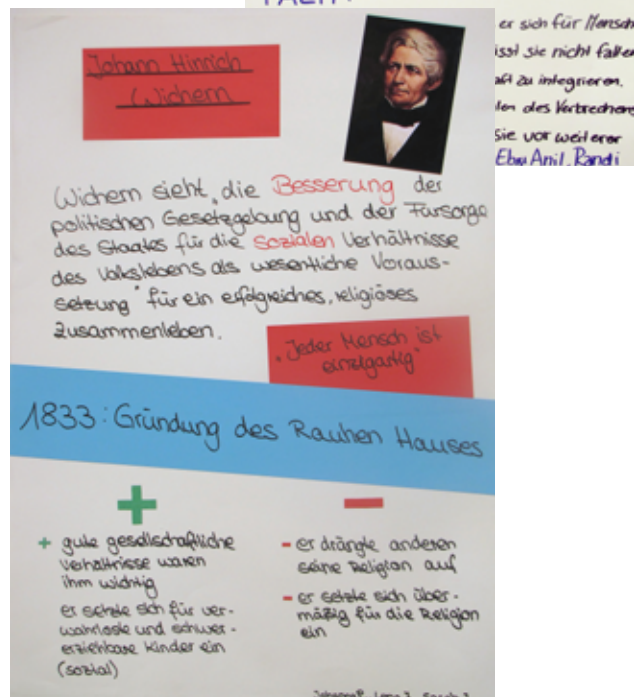 FAZIT:
er sich für Mensch
sst sie nicht fallen
aft zu integrieren.
len des Verbrechens
Sie vor weiterer
Ebru Anil, Randi
Johann Hinrich
Wichern
Wichern sieht „die Besserung der
politischen Gesetzgebung und der Fürsorge
des Staates für die sozialen Verhältnisse
des Volkslebens als wesentliche Voraus-
setzung" für ein erfolgreiches, religiöses
Zusammenleben.
„Jeder Mensch ist
einzigartig"
1833: Gründung des Rauhen Hauses
+ −
+ gute gesellschaftliche
Verhältnisse waren
ihm wichtig
er setzte sich für ver-
wahrloste und schwer-
erziehbare Kinder ein
(sozial)
- er drängte anderen
seine Religion auf
- er setzte sich über-
mäßig für die Religion
ein